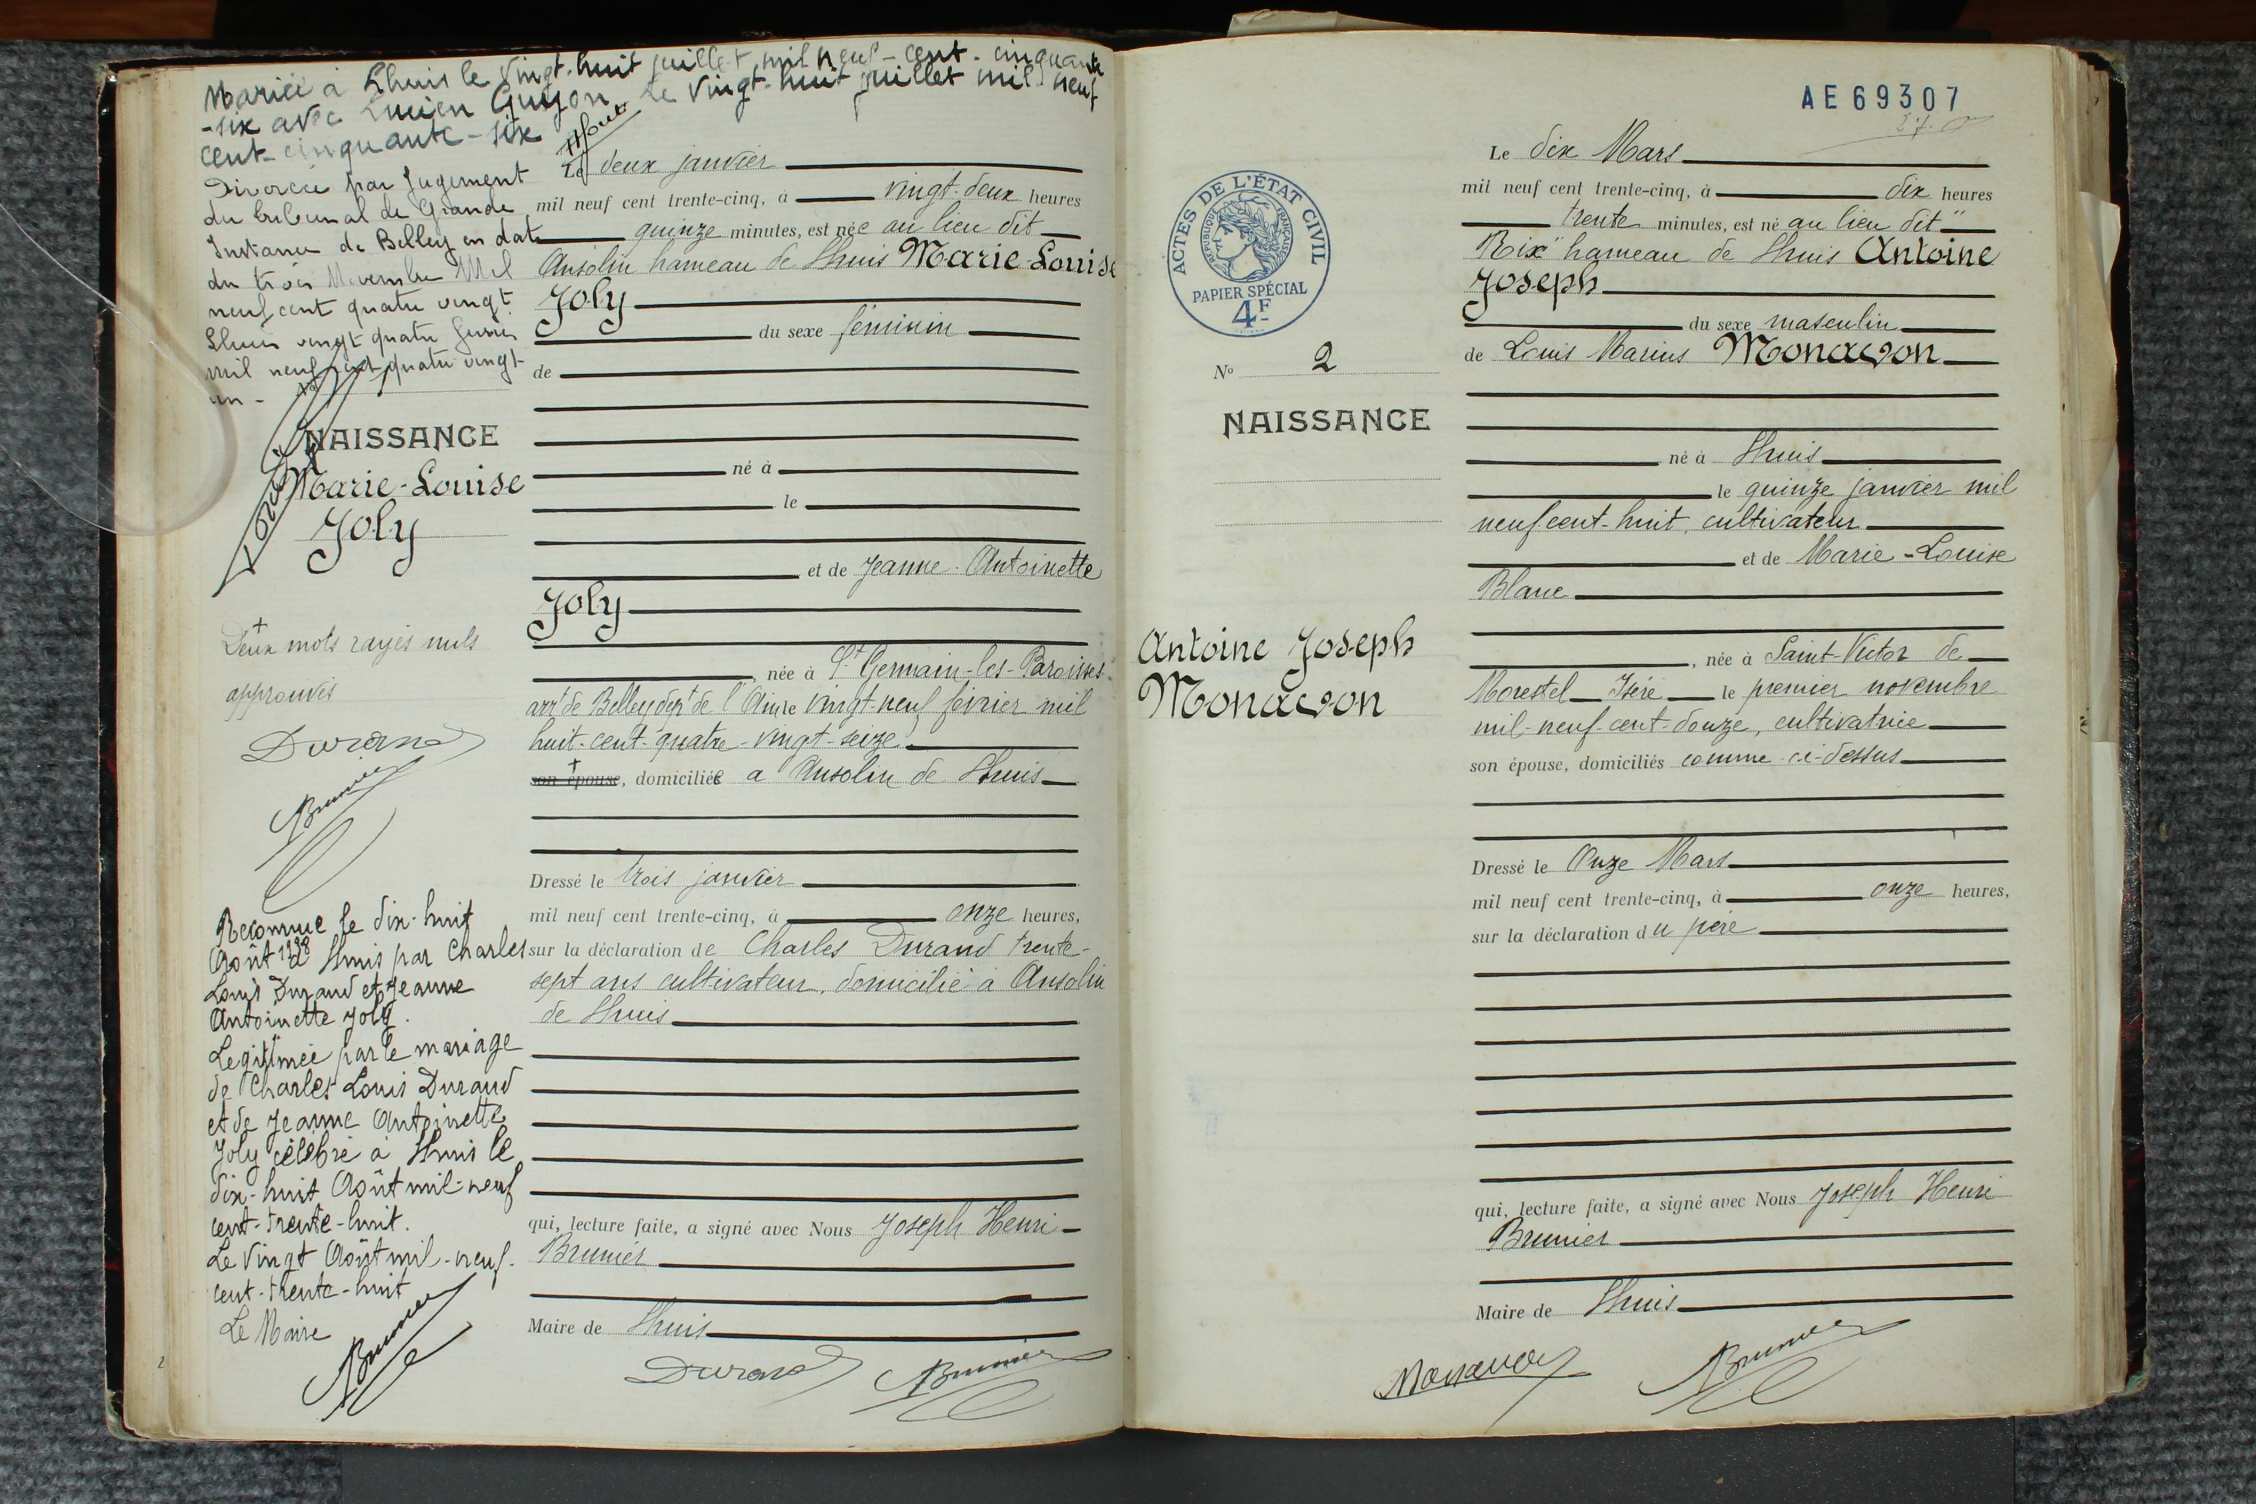 Mariée à Lhuis le vingt-huit juillet mil neuf-cent-cinquante
-six avec Lucien Guyon. Le vingt-huit juillet mil neuf
cent-cinquante-six
Divorcée par Jugement
du tribunal de Grande
Instance de Belley en date
du trois Novembre Mil
neuf cent quatre vingt
Lhuis vingt quatre
mil neuf cent quatre vingt-
un-
No 1
NAISSANCE
Marie-Louise
Joly
Deux mots rayés nuls
approuvés
Durand
Brunier
Reconnue le dix-huit
Août 1938 à Lhuis par Charles
Louis Durand et Jeanne
Antoinette Joly.
Légitimée par le mariage
de Charles Louis Durand
et de Jeanne Antoinette
Joly célébré à Lhuis le
dix-huit Août mil-neuf
cent-trente-huit.
Le vingt Août mil-neuf-
cent-trente-huit
Le Maire
Brunier
2
Le deux janvier
mil neuf cent trente-cinq, à vingt-deux heures
quinze minutes, est née au lieu dit
Ansolin hameau de Lhuis Marie-Louise
Joly
du sexe féminin
de
né à
le
et de Jeanne-Antoinette
Joly
, née à St Germain-les-Paroisses
arrt de Belley dept de l'Ain le vingt-neuf février mil
huit-cent-quatre-vingt-seize
son épouse, domiciliée a Ansolin de Lhuis
Dressé le trois janvier
mil neuf cent trente-cinq, à onze heures,
sur la déclaration de Charles Durand trente-
sept ans cultivateur, domicilié à Ansolin
de Lhuis
qui, lecture faite, a signé avec Nous Joseph Henri
Brunier
Maire de Lhuis
Durand Brunier
AE69307
ACTES DE L'ÉTAT CIVIL
RÉPUBLIQUE FRANÇAISE
PAPIER SPÉCIAL
4F
No 2
NAISSANCE
Antoine Joseph
Monavon
Le dix Mars
mil neuf cent trente-cinq, à dix heures
trente minutes, est né au lieu dit "
Rix" hameau de Lhuis Antoine
Joseph
du sexe masculin
de Louis Marius Monavon
né à Lhuis
le quinze janvier mil
neuf cent-huit, cultivateur
et de Marie-Louise
Blanc
, née à Saint-Victor de
Morestel Isère le premier novembre
mil-neuf-cent-douze, cultivatrice
son épouse, domiciliés comme ci-dessus
Dressé le Onze Mars
mil neuf cent trente-cinq, à onze heures,
sur la déclaration du père
qui, lecture faite, a signé avec Nous Joseph Henri
Brunier
Maire de Lhuis
Monavon Brunier